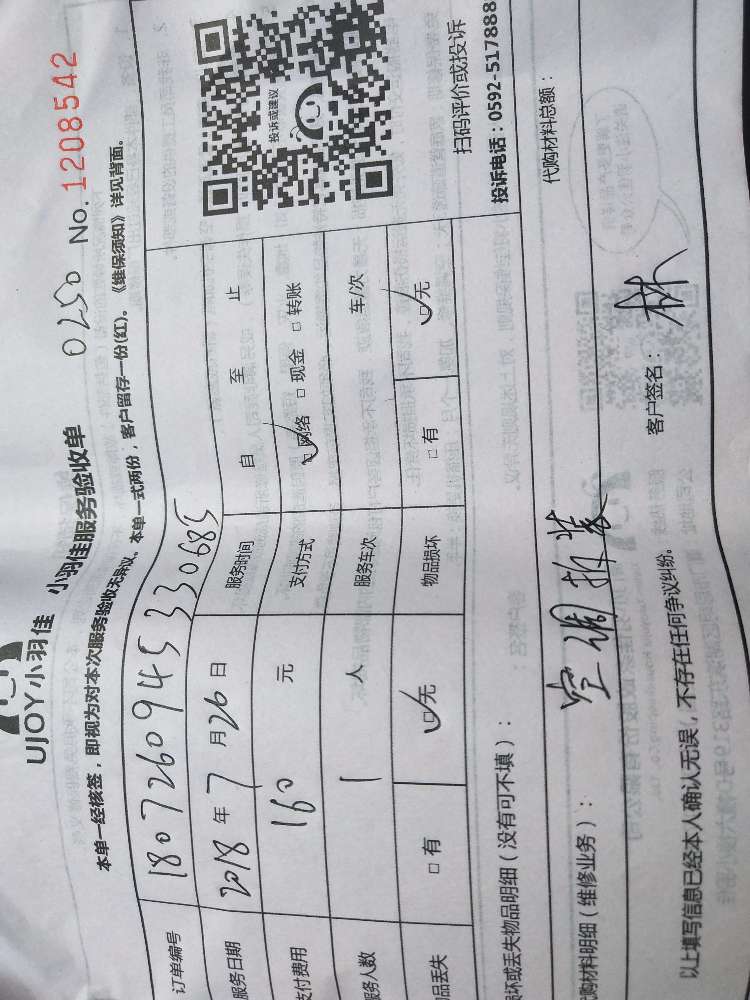 UJOY小羽佳 小羽佳服务验收单 0250 No. 1208542
本单一经核签，即视为对本次服务验收无异议。本单一式两份，客户留存一份(红)。《维保须知》详见背面。
订单编号 180726094533 0685
服务日期 2018年7月26日 服务时间 自 至 止
支付费用 160 元 支付方式 ☑网络 □现金 □转账
服务人数 1 人 服务车次 车/次
品丢失 □有 ☑无 物品损坏 □有 ☑无
投诉或建议
扫码评价或投诉
投诉电话：0592-517888
损坏或丢失物品明细（没有可不填）：
购材料明细（维修业务）： 空调拆装 代购材料总额：
以上填写信息已经本人确认无误，不存在任何争议纠纷。 客户签名： 林